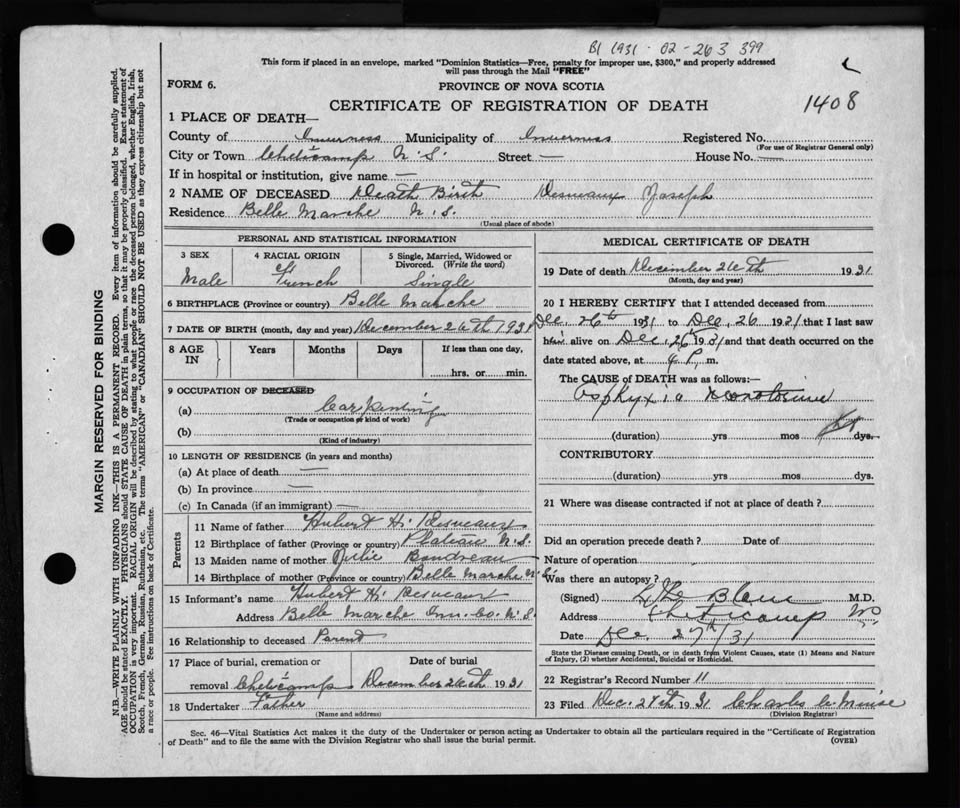 B1 1931 - 02 - 263 399
This form if placed in an envelope, marked "Dominion Statistics—Free, penalty for improper use, $300," and properly addressed
will pass through the Mail "FREE"
FORM 6.
PROVINCE OF NOVA SCOTIA
CERTIFICATE OF REGISTRATION OF DEATH
1408
1 PLACE OF DEATH—
County of Inverness Municipality of Inverness Registered No.
(For use of Registrar General only)
City or Town Cheticamp N.S. Street — House No. —
If in hospital or institution, give name —
2 NAME OF DECEASED Death Birth Desveaux Joseph
Residence Belle Marche N.S.
(Usual place of abode)
PERSONAL AND STATISTICAL INFORMATION
3 SEX
Male
4 RACIAL ORIGIN
French
5 Single, Married, Widowed or
Divorced. (Write the word)
Single
6 BIRTHPLACE (Province or country) Belle Marche
7 DATE OF BIRTH (month, day and year) December 26th 1931
8 AGE IN
Years Months Days If less than one day,
hrs. or min.
9 OCCUPATION OF DECEASED
(a) Carpenting
(Trade or occupation or kind of work)
(b)
(Kind of industry)
10 LENGTH OF RESIDENCE (in years and months)
(a) At place of death —
(b) In province —
(c) In Canada (if an immigrant) —
Parents
11 Name of father Hubert H. Desveaux
12 Birthplace of father (Province or country) Plateau N.S.
13 Maiden name of mother Boudreau
14 Birthplace of mother (Province or country) Belle Marche N.S.
15 Informant's name Hubert H. Desveaux
Address Belle Marche Inv. Co. N.S.
16 Relationship to deceased Parent
17 Place of burial, cremation or
removal Cheticamp
Date of burial
December 26th 1931
18 Undertaker Father
(Name and address)
MEDICAL CERTIFICATE OF DEATH
19 Date of death December 26th 1931
(Month, day and year)
20 I HEREBY CERTIFY that I attended deceased from
Dec. 26th 1931 to Dec. 26 1931 that I last saw
him alive on Dec. 26th 1931 and that death occurred on the
date stated above, at 4 P. m.
The CAUSE OF DEATH was as follows:—
Asphyxia
(duration) yrs mos dys.
CONTRIBUTORY
(duration) yrs mos dys.
21 Where was disease contracted if not at place of death?
Did an operation precede death? Date of
Nature of operation
Was there an autopsy?
(Signed) M.D.
Address Cheticamp NS
Date Dec. 27th/31
State the Disease causing Death, or in death from Violent Causes, state (1) Means and Nature
of Injury, (2) whether Accidental, Suicidal or Homicidal.
22 Registrar's Record Number 11
23 Filed Dec. 27th 1931 Charles
(Division Registrar)
Sec. 46—Vital Statistics Act makes it the duty of the Undertaker or person acting as Undertaker to obtain all the particulars required in the "Certificate of Registration
of Death" and to file the same with the Division Registrar who shall issue the burial permit.
(OVER)
MARGIN RESERVED FOR BINDING
N.B.—WRITE PLAINLY WITH UNFADING INK—THIS IS A PERMANENT RECORD. Every item of information should be carefully supplied.
AGE should be stated EXACTLY. PHYSICIANS should STATE CAUSE OF DEATH in plain terms, so that it may be properly classified. Exact statement of
OCCUPATION is very important. RACIAL ORIGIN will be described by stating to what people or race the deceased person belonged, whether English, Irish,
Scotch, French, German, Russian, Ruthenian, etc. The terms "AMERICAN" or "CANADIAN" SHOULD NOT BE USED as they express citizenship but not
a race or people. See instructions on back of Certificate.